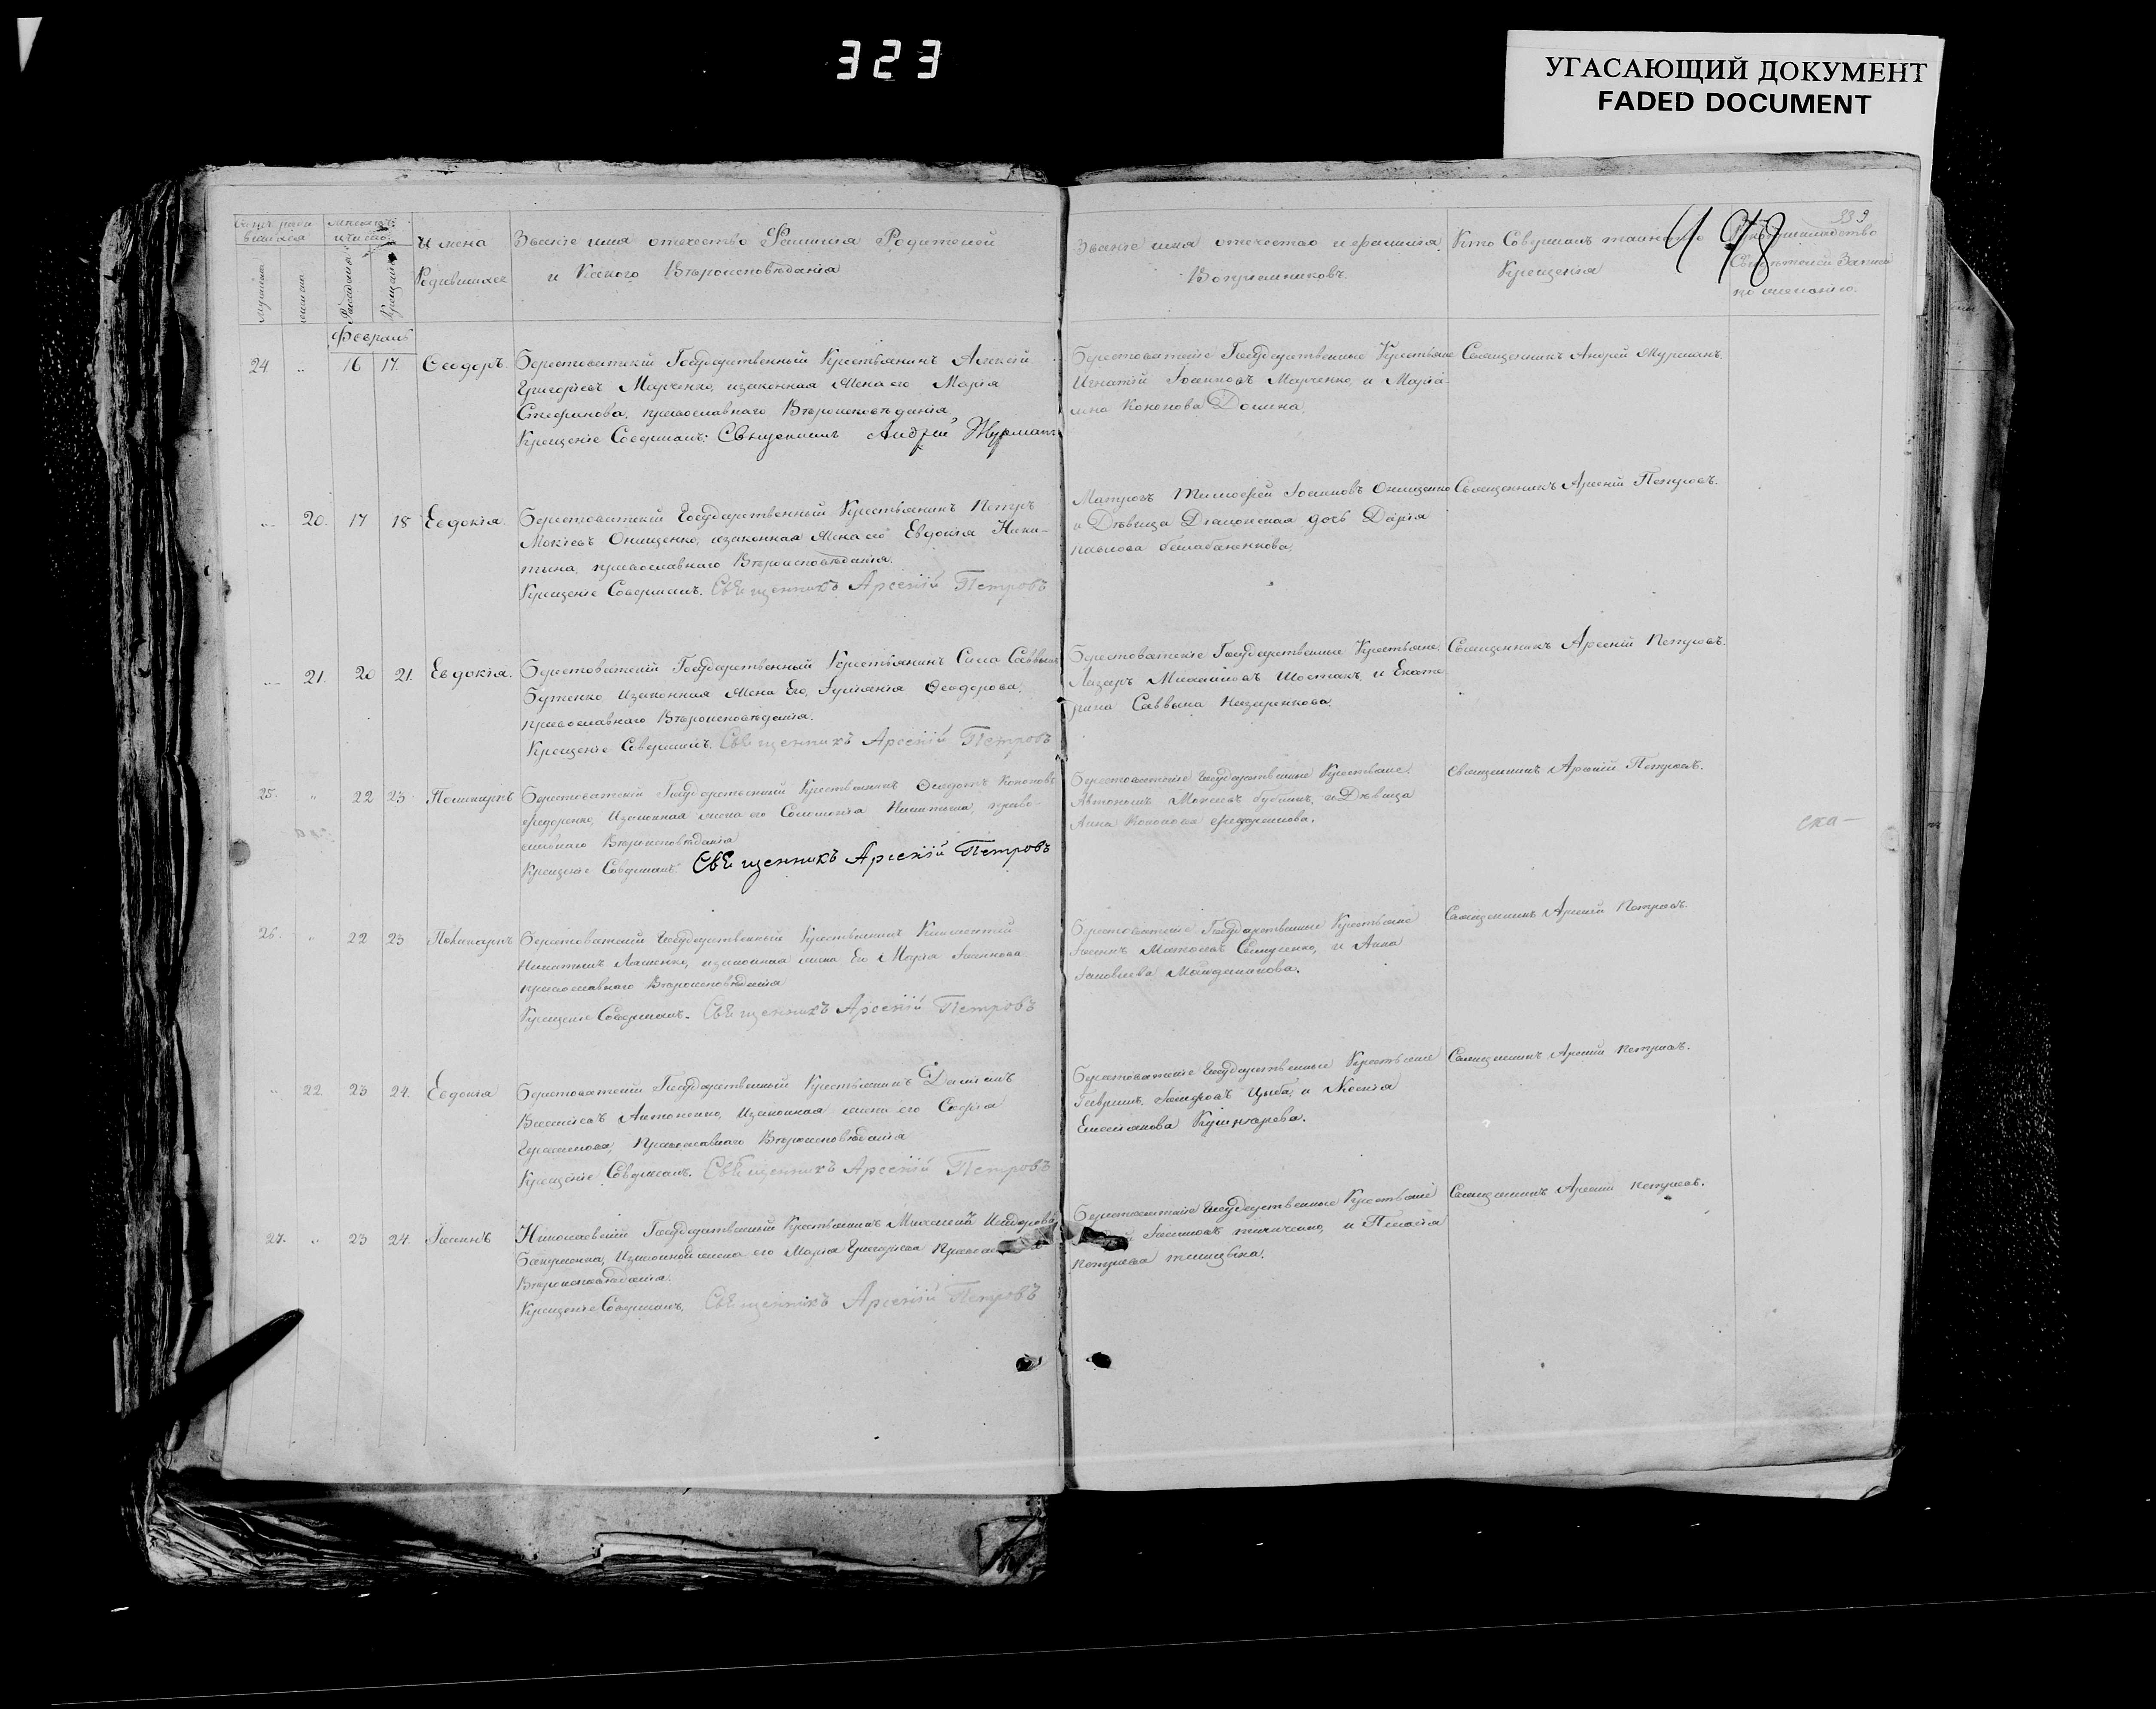 323
УГАСАЮЩИЙ ДОКУМЕНТ
FADED DOCUMENT
Имена
Родившихся
Званіе имя отечество Фамилія Родителей
и Какого Вѣроисповѣданія
мужеска
женска
Рожденія
Крещенія
Февраль
Званіе имя отечество и фамилія
Воспріемниковъ.
Кто Совершалъ таинство
Крещенія
Рукоприкладство
Свѣдѣтелей Записи
по желанію.
339
478
24 „ 16 17. Ѳеодоръ.
Берестоватскій Государственный Крестьянинъ Алексѣй
Григорьевъ Марченко, изаконная Жена его Марія
Стефанова, православнаго Вѣроисповѣданія
Крещеніе Совершалъ: Священникъ Андрей Журманъ
Берестоватскіе Государственные Крестьяне
Игнатій Іоанновъ Марченко, и Маріа-
мна Кононова Домина.
Священникъ Андрей Журманъ.
„ 20. 17 18 Евдокія.
Берестоватскій Государственный Крестьянинъ Петръ
Мокіевъ Онищенко, изаконная Жена его Евдокія Ники-
тина, православнаго Вѣроисповѣданія.
Крещеніе Совершалъ. Священникъ Арсеній Петровъ
Матросъ Тимофей Іоанновъ Онищенко
и Дѣвица Дьяконская дочь Дарія
павлова балабаненкова.
Священникъ Арсеній Петровъ.
„ 21. 20 21. Евдокія.
Берестоватскій Государственный Крестьянинъ Сила Саввинъ
Бутенко, изаконная Жена Его, Іуліанія Ѳеодорова,
православнаго Вѣроисповѣданія.
Крещеніе Совершалъ. Священникъ Арсеній Петровъ
Берестоватскіе Государственные Крестьяне,
Лазарь Михайловъ Шостакъ, и Екате
рина Саввина Назаренкова.
Священникъ Арсеній Петровъ.
25. „ 22 23 Поликарпъ
Берестоватскій Государственный Крестьянинъ Ѳеодотъ Кононовъ
Федоренко, Изаконная жена его Соломонія Никитина право-
славнаго Вѣроисповѣданія
Крещеніе Совершалъ Священникъ Арсеній Петровъ
Берестоватскіе Государственные Крестьяне,
Автономъ Мокіевъ бубликъ, и Дѣвица
Анна Кононова Федоренкова.
Священникъ Арсеній Петровъ.
26. „ 22 23 Поликарпъ
Берестоватскій Государственный Крестьянинъ
Никитинъ Ляшенко, изаконная жена Его Марія Іоаннова
православнаго Вѣроисповѣданія
Крещеніе Совершалъ. Священникъ Арсеній Петровъ
Берестоватскіе Государственные Крестьяне
и Анна
Священникъ Арсеній Петровъ.
„ 22. 23 24. Евдокія
Берестоватскій Государственный Крестьянинъ Даміанъ
Василіевъ Антоненко, Изаконная жена его Софія
Герасимова, Православнаго Вѣроисповѣданія
Крещеніе Совершалъ. Священникъ Арсеній Петровъ
Берестоватскіе Государственные Крестьяне
Гавріилъ Цыба, и Ксенія
Емеліанова
Священникъ Арсеній Петровъ.
27. „ 23 24. Іоаннъ
Николаевскій Государственный Крестьянинъ Михаилъ
Изаконная жена его Марія Григорьева
Вѣроисповѣданія.
Крещеніе Совершалъ, Священникъ Арсеній Петровъ
Берестоватскіе Государственные Крестьяне
Іоанновъ и Пелагія
петрова
Священникъ Арсеній Петровъ.